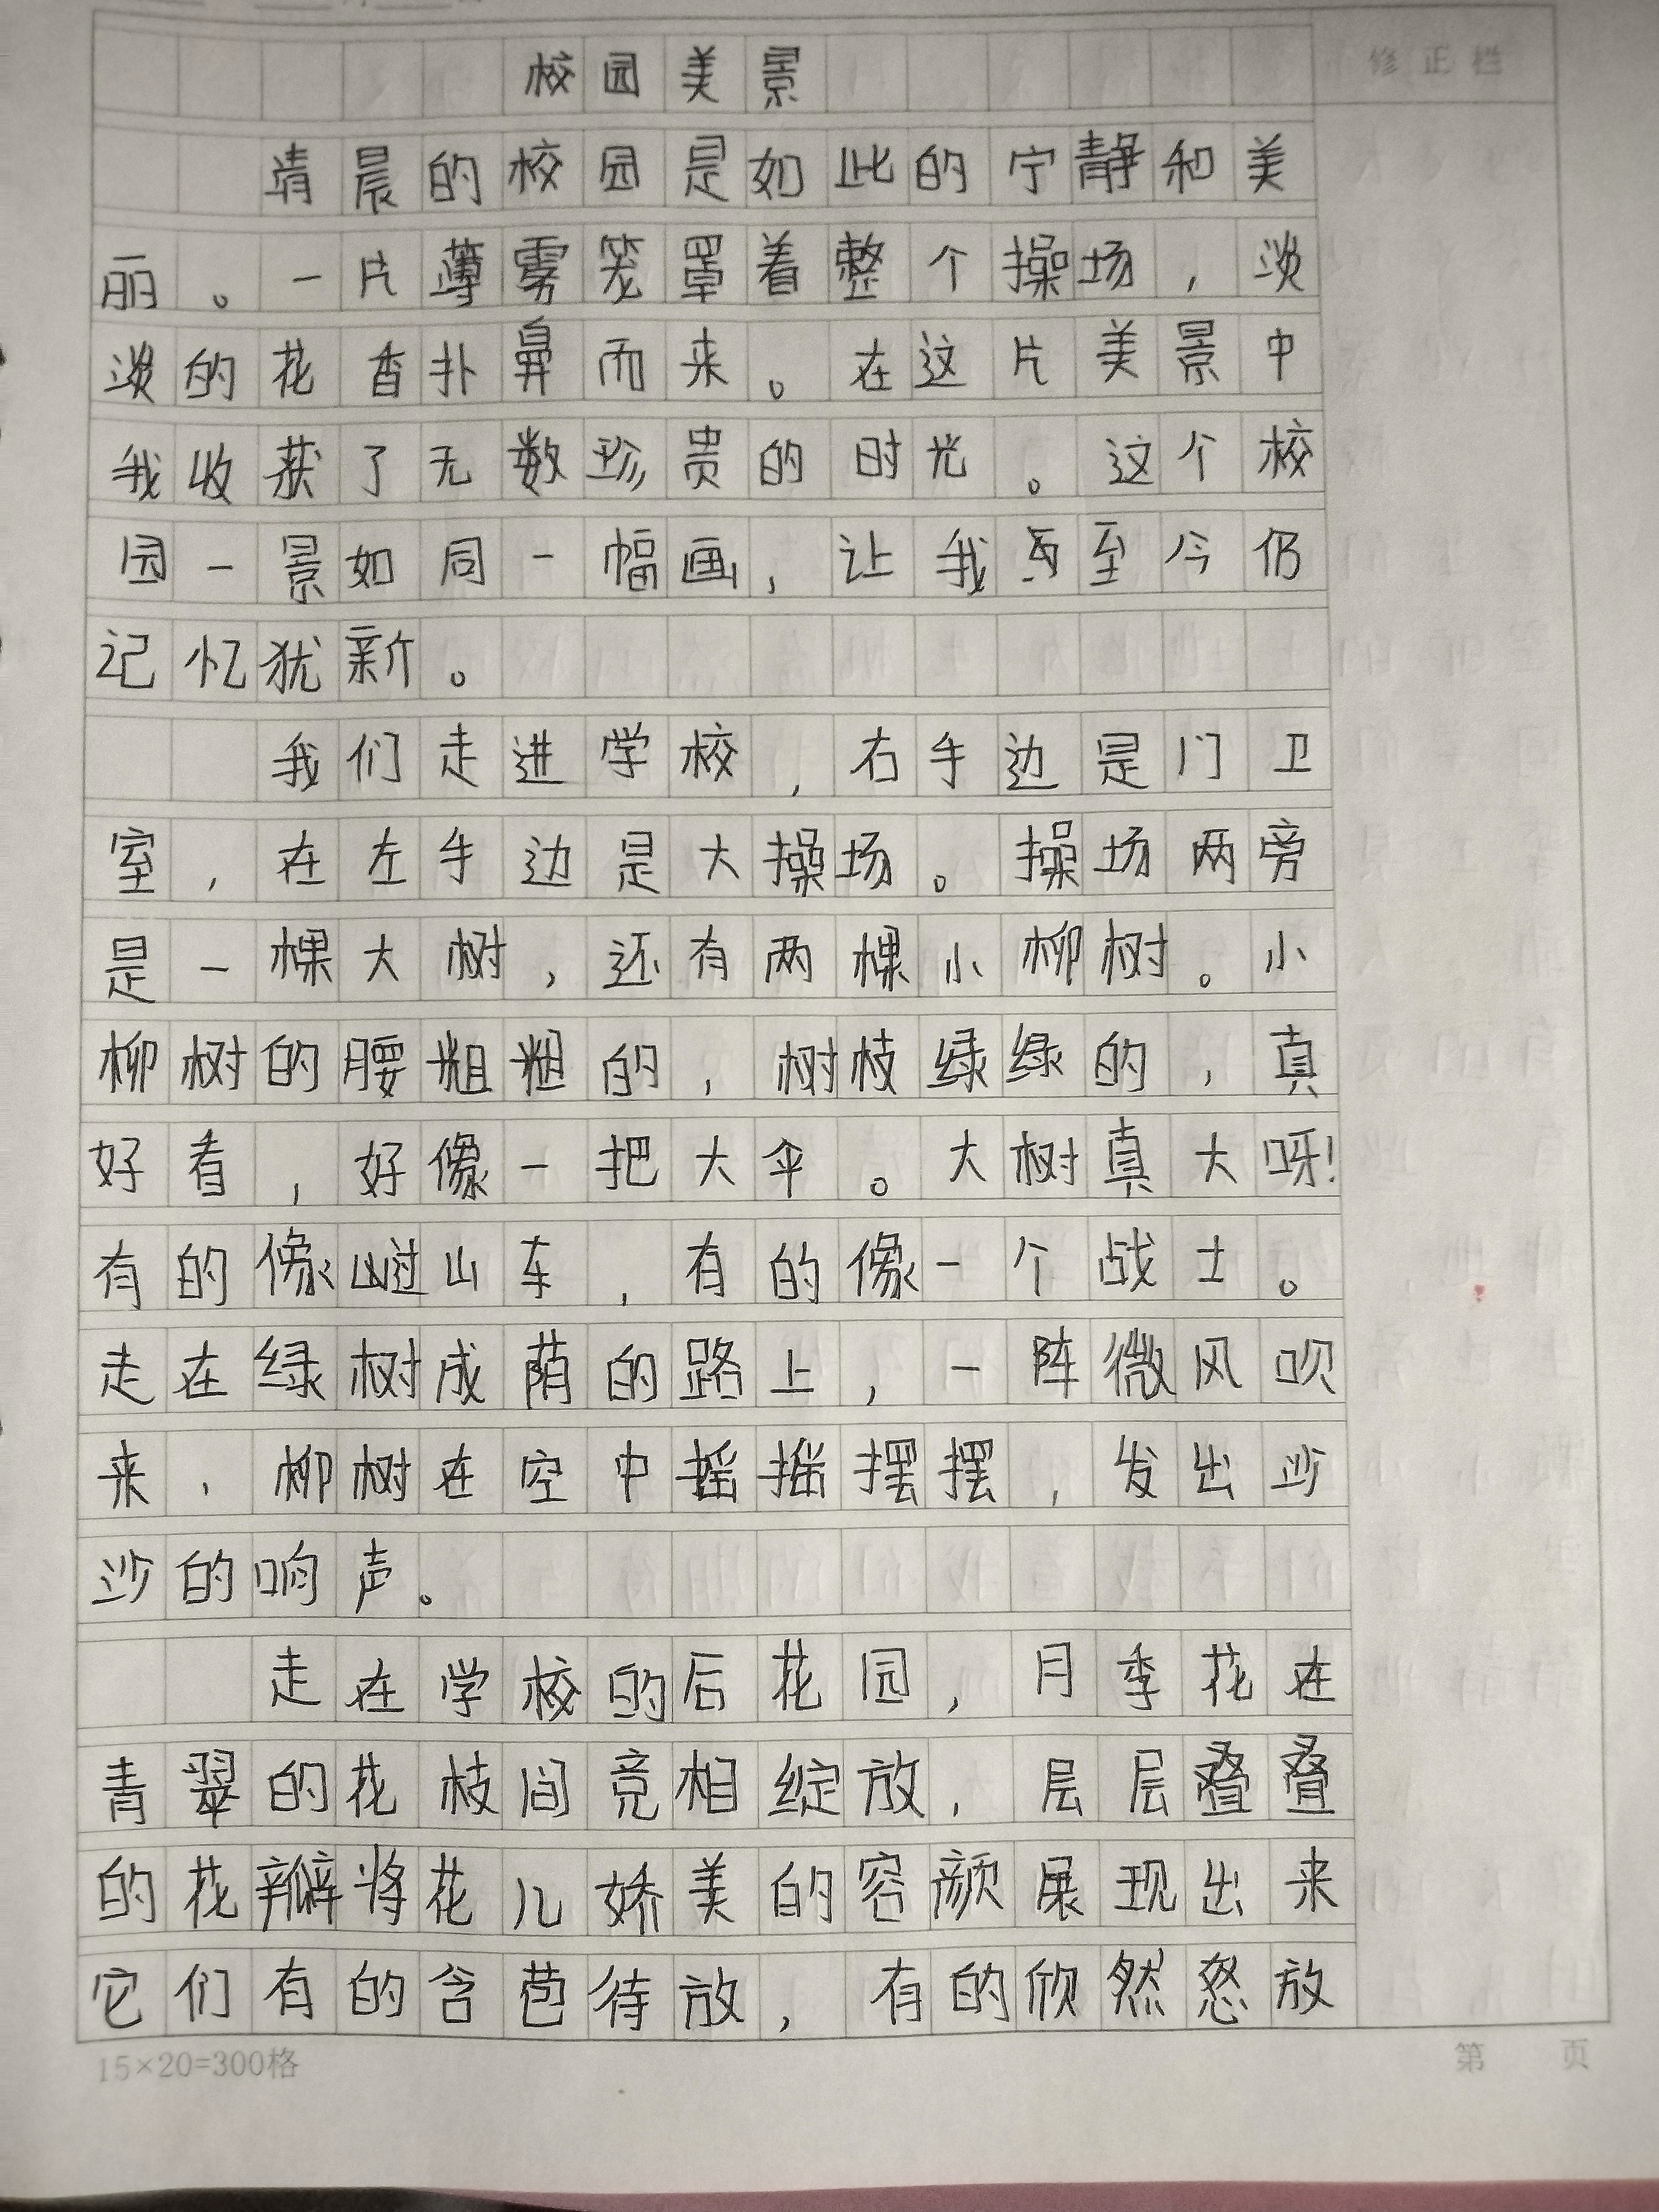 校园美景
修正栏
清晨的校园是如此的宁静和美
丽。一片薄雾笼罩着整个操场，淡
淡的花香扑鼻而来。在这片美景中
我收获了无数珍贵的时光。这个校
园一景如同一幅画，让我至今仍
记忆犹新。
我们走进学校，右手边是门卫
室，在左手边是大操场。操场两旁
是一棵大树，还有两棵小柳树。小
柳树的腰粗粗的，树枝绿绿的，真
好看，好像一把大伞。大树真大呀！
有的像过山车，有的像一个战士。
走在绿树成荫的路上，一阵微风吹
来，柳树在空中摇摇摆摆，发出沙
沙的响声。
走在学校的后花园，月季花在
青翠的花枝间竞相绽放，层层叠叠
的花瓣将花儿娇美的容颜展现出来
它们有的含苞待放，有的欣然怒放
15×20=300格
第 页